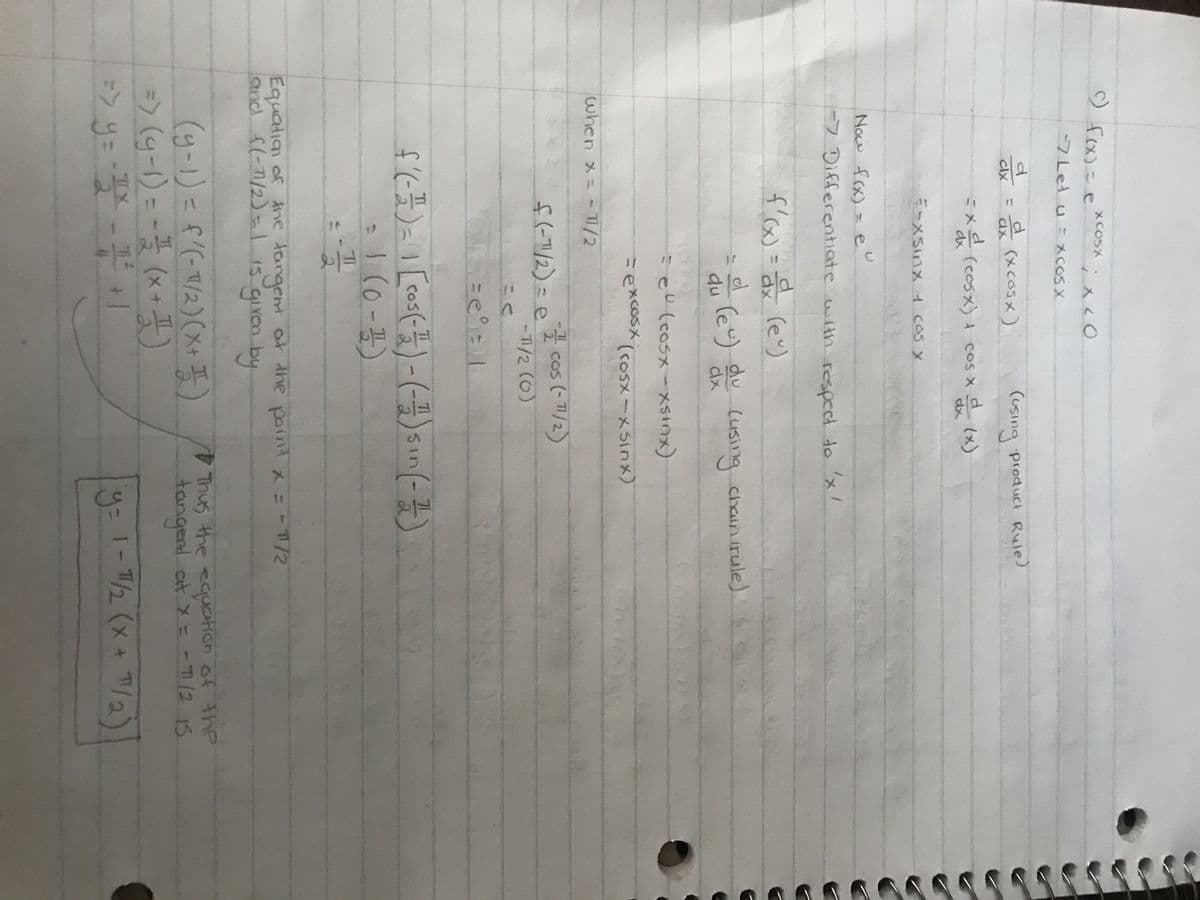 c) f(x) = e^(x cosx) ; x < 0
-> Let u = x cosx
d/dx = d/dx (x cosx) (using product Rule)
= x d/dx (cosx) + cos x d/dx (x)
= -x sinx + cos x
Now f(x) = e^u
-> Differentiate with respect to 'x'
f'(x) = d/dx (e^u)
= d/du (e^u) du/dx (using chain rule)
= e^u (cosx - x sinx)
= e^xcosx (cosx - x sinx)
when x = -π/2
f(-π/2) = e^(-π/2 cos(-π/2))
= e^(-π/2 (0))
= e^0 = 1
f'(-π/2) = 1 [cos(-π/2) - (-π/2) sin(-π/2)]
= 1 (0 - π/2)
= -π/2
Equation of the tangent at the point x = -π/2
and f(-π/2) = 1 is given by
(y-1) = f'(-π/2)(x + π/2)
=> (y-1) = -π/2 (x + π/2)
=> y = -πx/2 - π²/4 + 1
Thus the equation of the
tangent at x = -π/2 is
y = 1 - π/2 (x + π/2)